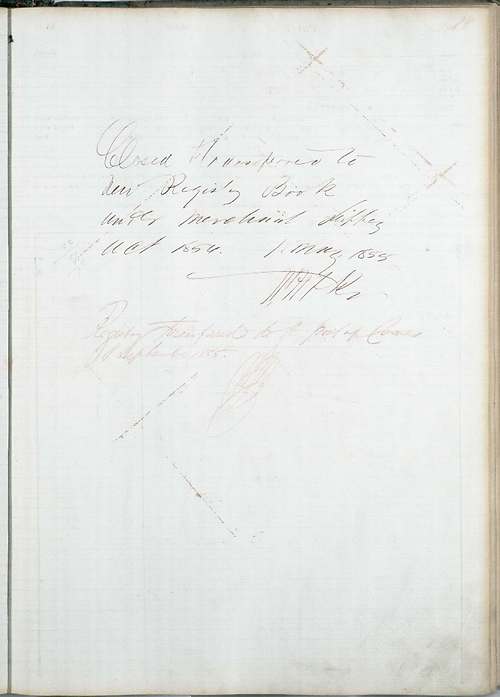 Closed & Transferred to
New Registry Book
under Merchant Shipping
Act 1854. 1. May 1855
Registry transferred to the port of
September 1855.